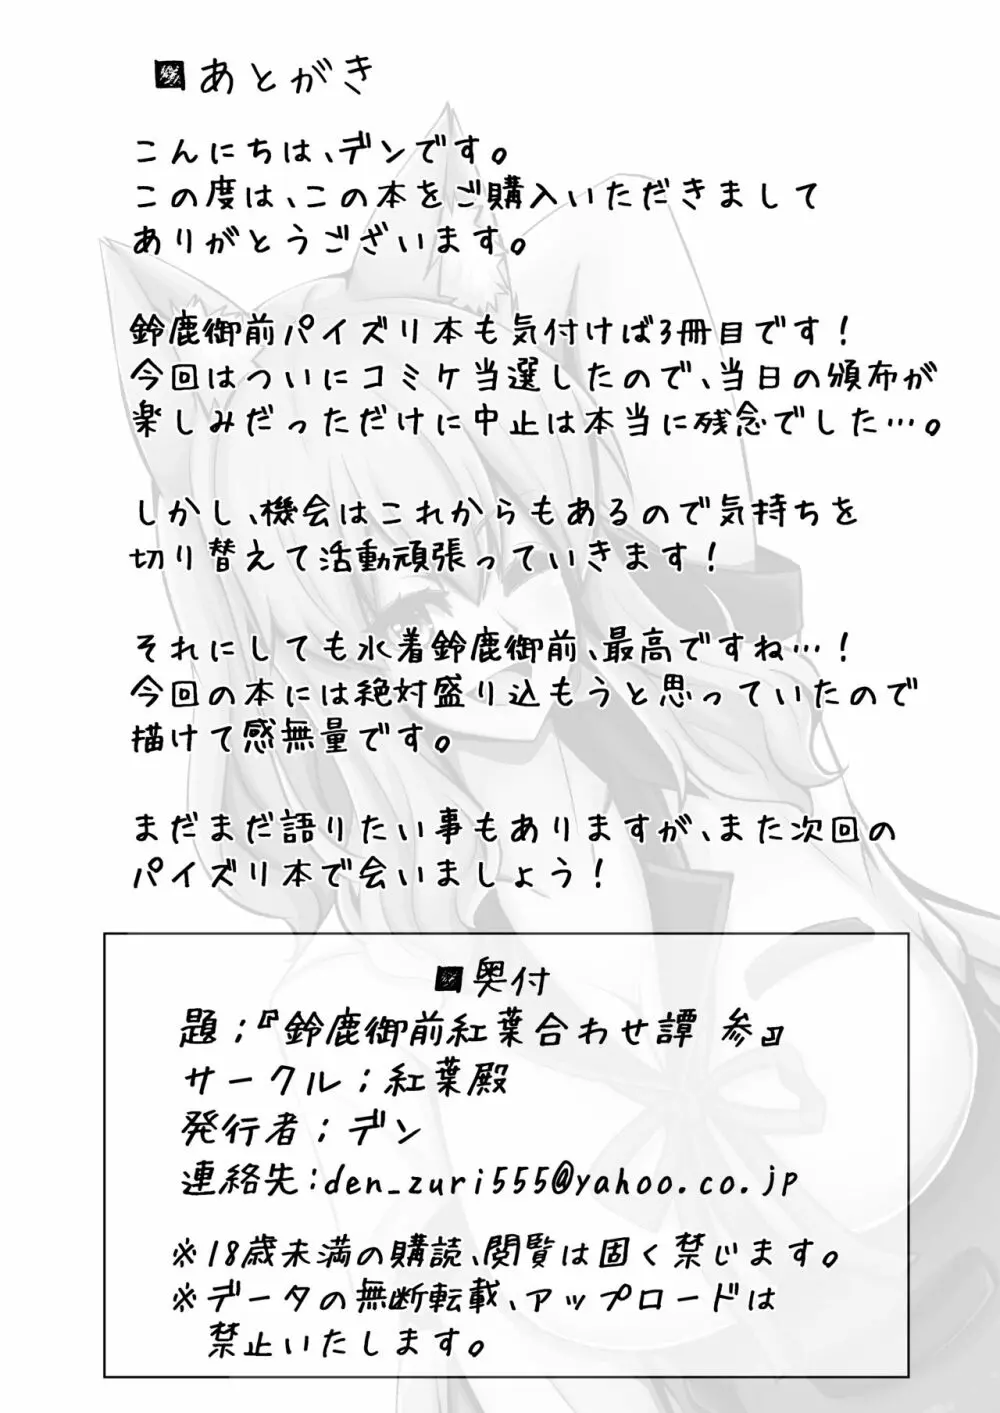 ■あとがき
こんにちは、デンです。
この度は、この本をご購入いただきまして
ありがとうございます。
鈴鹿御前パイズリ本も気付けば3冊目です！
今回はついにコミケ当選したので、当日の頒布が
楽しみだっただけに中止は本当に残念でした…。
しかし、機会はこれからもあるので気持ちを
切り替えて活動頑張っていきます！
それにしても水着鈴鹿御前、最高ですね…！
今回の本には絶対盛り込もうと思っていたので
描けて感無量です。
まだまだ語りたい事もありますが、また次回の
パイズリ本で会いましょう！
■奥付
題：『鈴鹿御前紅葉合わせ譚 参』
サークル：紅葉殿
発行者：デン
連絡先：den_zuri555@yahoo.co.jp
※18歳未満の購読、閲覧は固く禁じます。
※データの無断転載、アップロードは
禁止いたします。